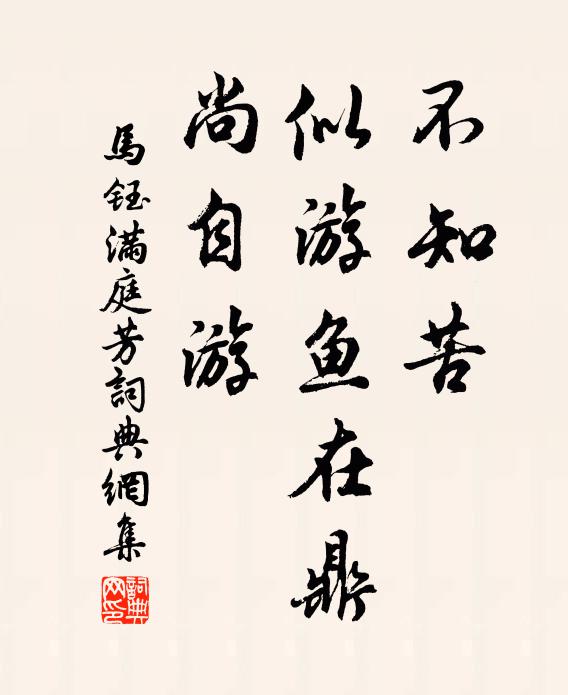 不知苦
似游鱼在鼎
尚自游
馬鈺滿庭芳詞典網集
詞典網印